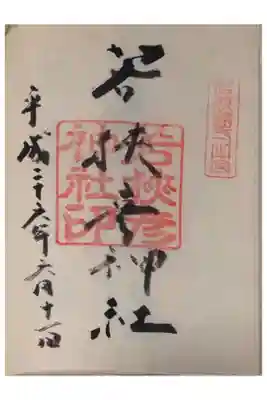 若狭彦神社
若狭彦
神社印
平成二十六年六月十一日